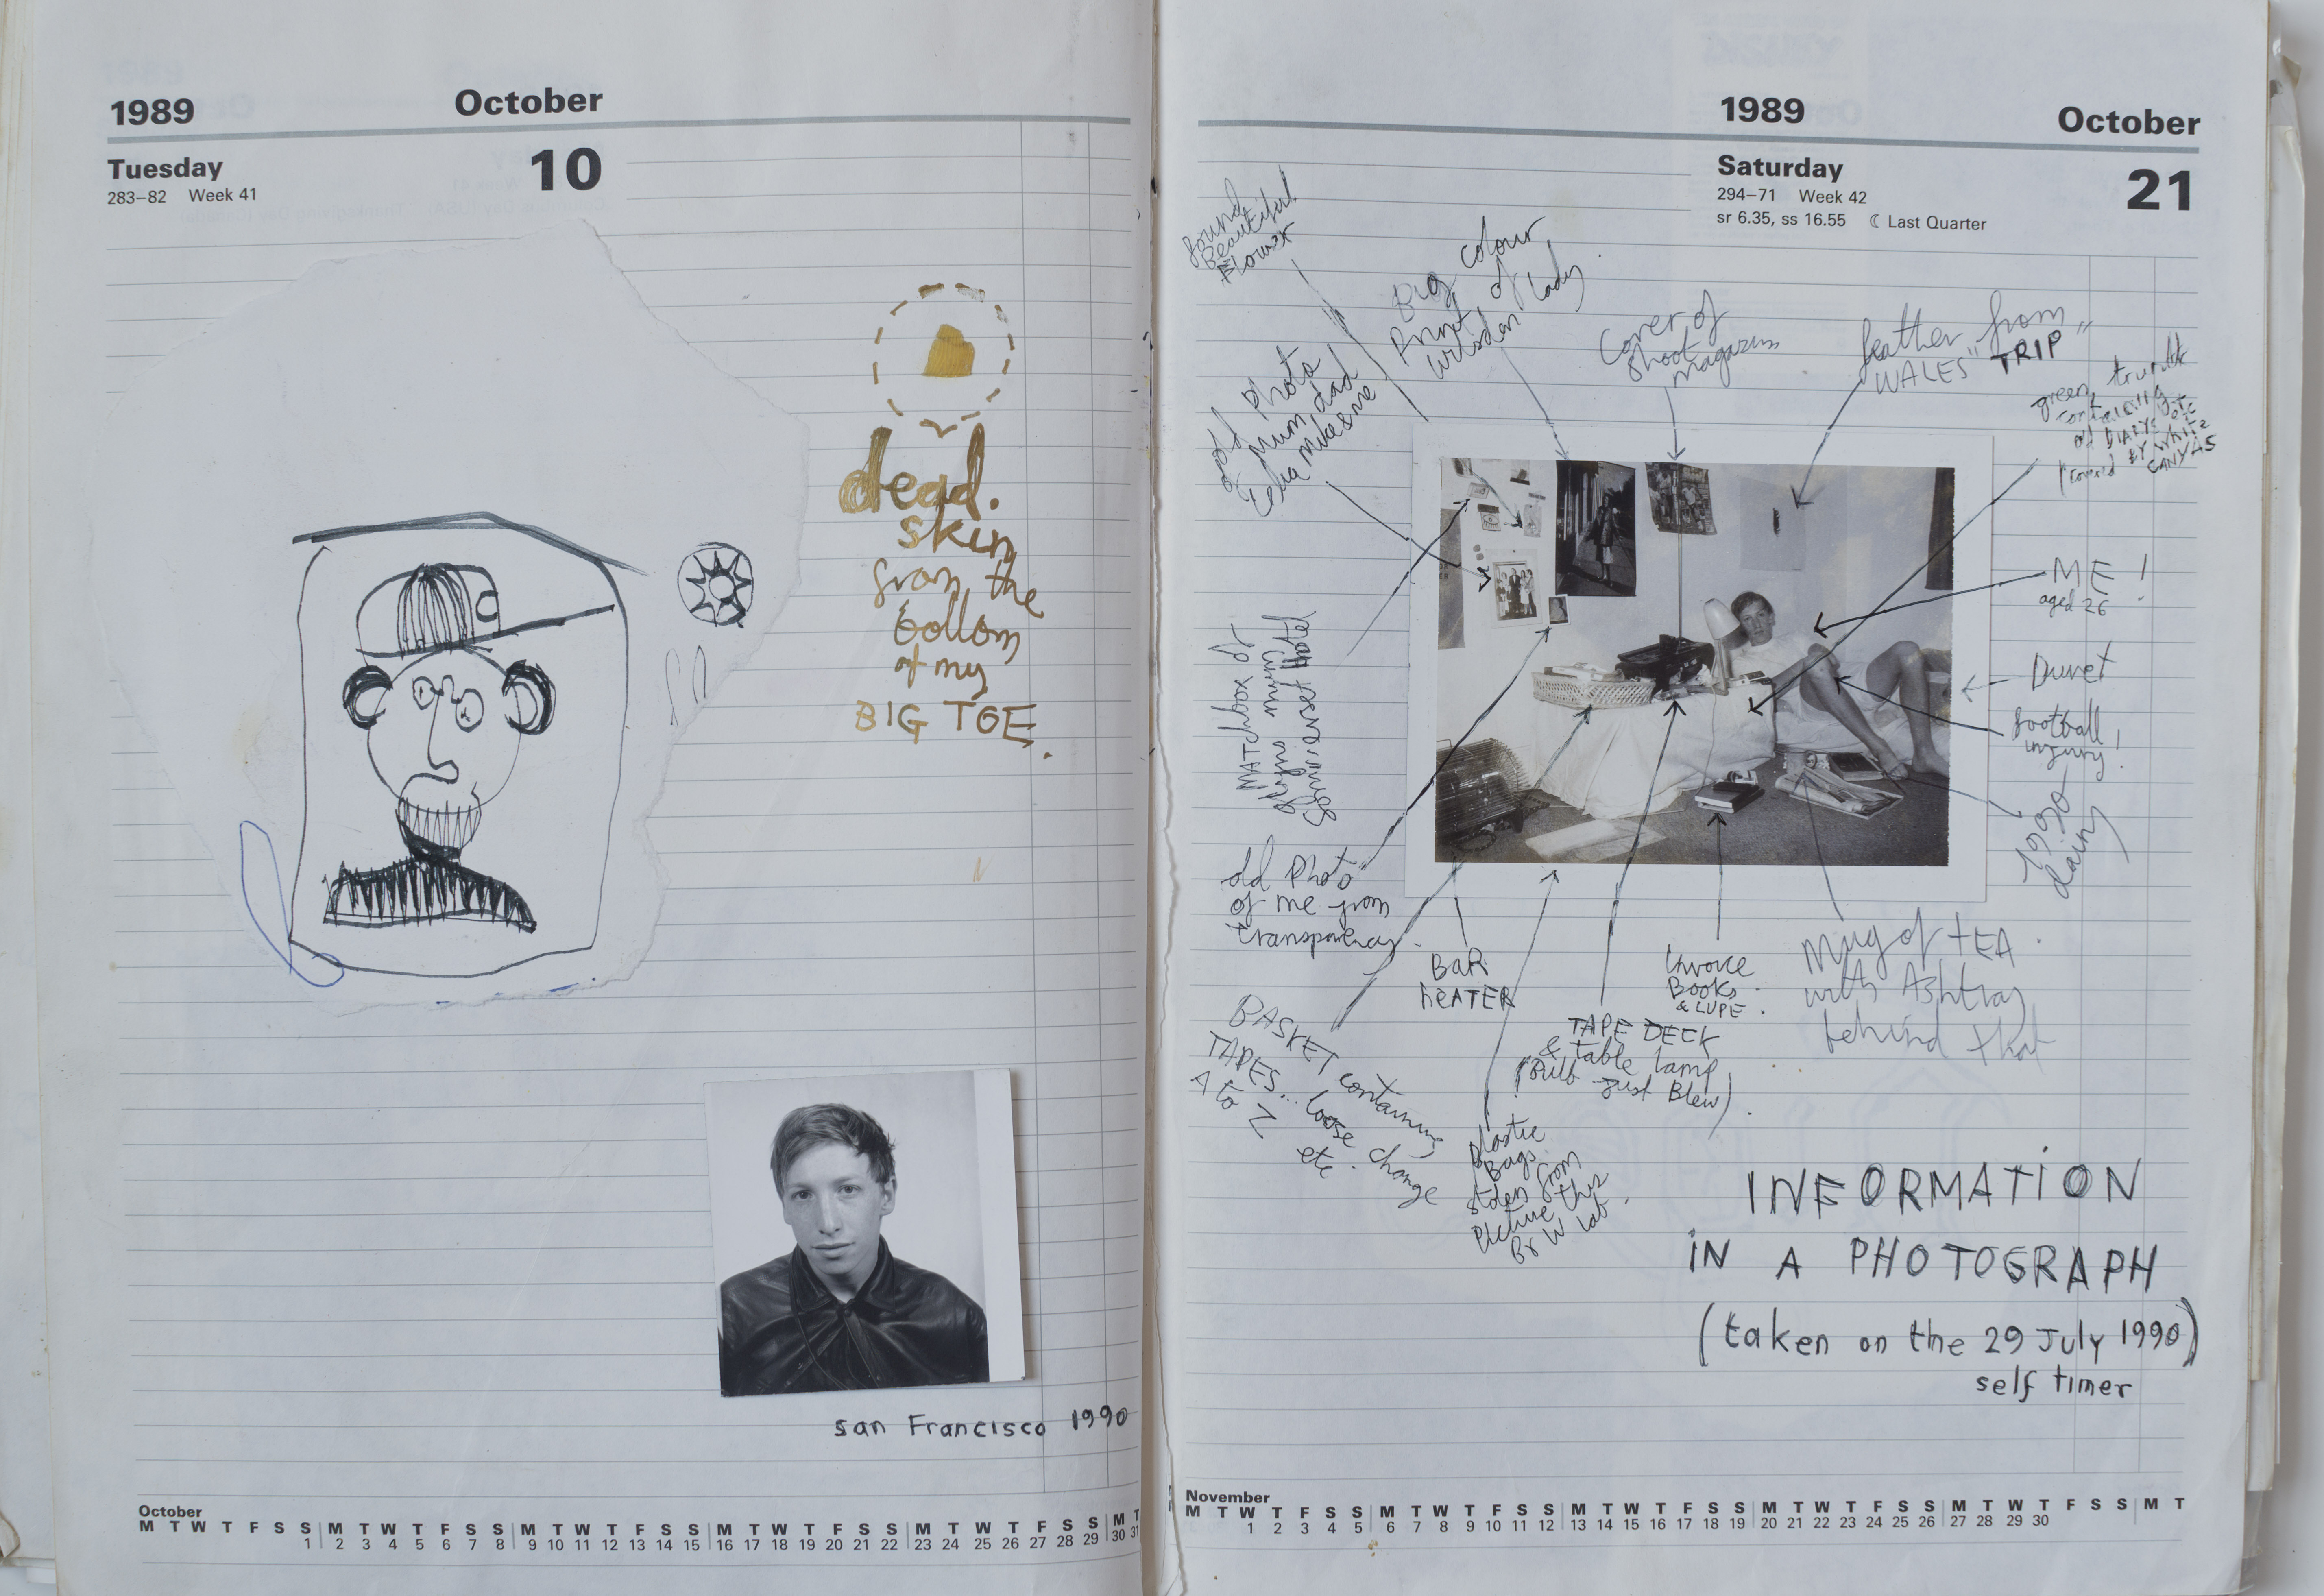 1989 October
Tuesday 10
283–82 Week 41
dead.
skin
from the
bottom
of my
BIG TOE.
san Francisco 1990
October
M T W T F S S M T W T F S S M T W T F S S M T W T F S S M T W T F S S M T
1 2 3 4 5 6 7 8 9 10 11 12 13 14 15 16 17 18 19 20 21 22 23 24 25 26 27 28 29 30 31
1989 October
Saturday 21
294–71 Week 42
sr 6.35, ss 16.55 Last Quarter
found
Beautiful
Flower
Big colour
Print of
lady
Cover of
Shoot
Magazine
feather from
"WALES" TRIP"
green trunk
containing
old DIARYS etc
covered BY white
CANVAS
Photo
Mum, dad
mike & me
ME!
aged 26
Duvet
football
injury!
1990
diary
MATCHbox of
Somerset Hotel
old Photo
of me from
transparency.
BAR
heATER
Invoice
Books
& LUPE.
Mug of tEA
with Ashtray
behind that
BASKET containing
TAPES... loose change
A to Z etc.
TAPE DECK
& table lamp
(Bulb just Blew).
plastic
Bags
stolen from
Picture this
B & W lab.
INFORMATION
IN A PHOTOGRAPH
(taken on the 29 July 1990)
self timer
November
M T W T F S S M T W T F S S M T W T F S S M T W T F S S M T W T F S S M T
1 2 3 4 5 6 7 8 9 10 11 12 13 14 15 16 17 18 19 20 21 22 23 24 25 26 27 28 29 30